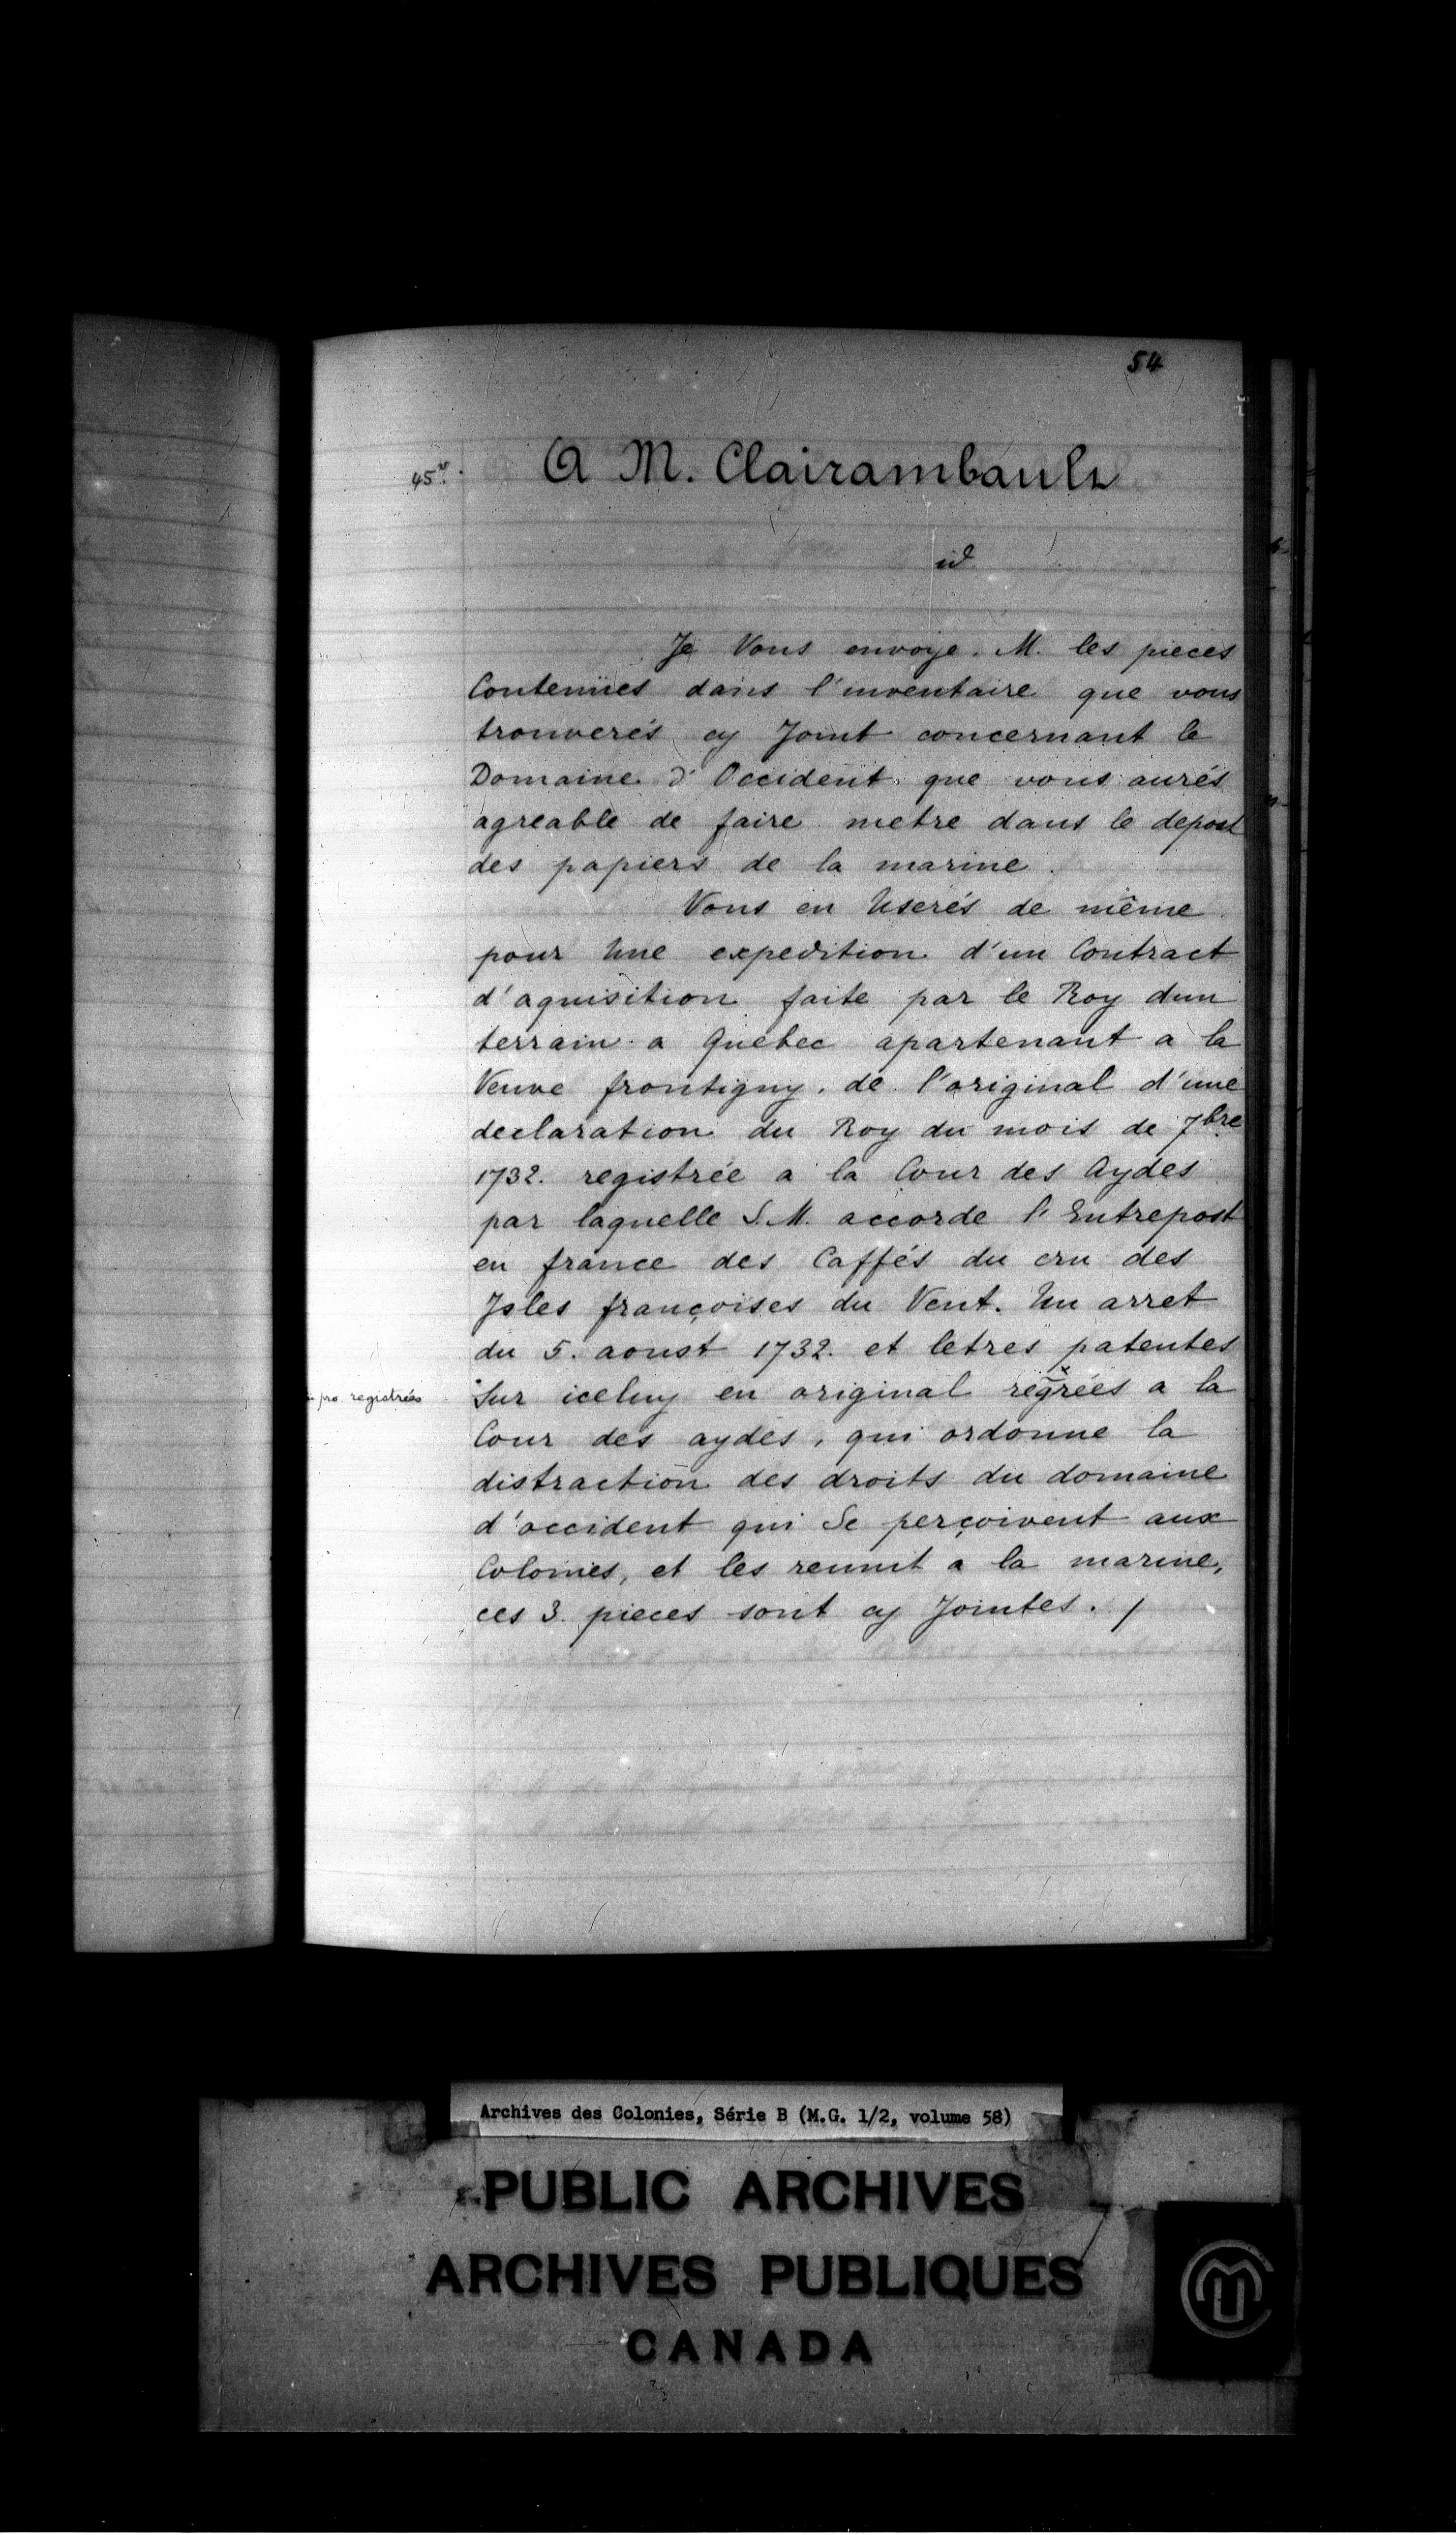 54
45v.
A M. Clairambault
id
Je Vous envoye. M. les pieces
Contenües dans l'inventaire que vous
trouverés cy Joint concernant le
Domaine d'Occident que vous aurés
agreable de faire metre dans le depost
des papiers de la marine.
Vous en Userés de même
pour Une expedition d'un Contract
d'aquisition faite par le Roy dun
terrain a Quebec apartenant a la
Veuve frontigny. de l'original d'une
declaration du Roy du mois de 7bre
1732. registrée a la Cour des Aydes
par laquelle S.M. accorde l'Entrepost
en france des Caffés du cru des
Isles françoises du Vent. Un arret
du 5. aoust 1732. et letres patentes
pro. registrées
Sur iceluy en original regrées x a la
Cour des aydes, qui ordonne la
distraction des droits du domaine
d'occident qui Se perçoivent aux
Colonies, et les reunit a la marine,
ces 3. pieces sont cy Jointes. /
Archives des Colonies, Série B (M.G. 1/2, volume 58)
PUBLIC ARCHIVES
ARCHIVES PUBLIQUES
CANADA